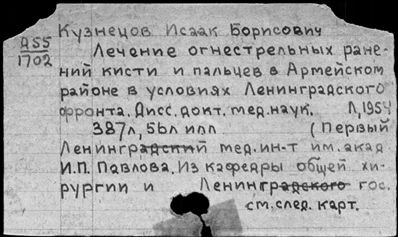 Кузнецов Исаак Борисович
А55
1702
Лечение огнестрельных ране-
ний кисти и пальцев в Армейском
районе в условиях Ленинградского
фронта. Дисс. докт. мед. наук. Л, 1954
387л, 56л илл (Первый
Ленинградский мед. ин-т им. акад
И.П. Павлова. Из кафедры общей хи-
рургии и Ленинградского гос.
см. след. карт.